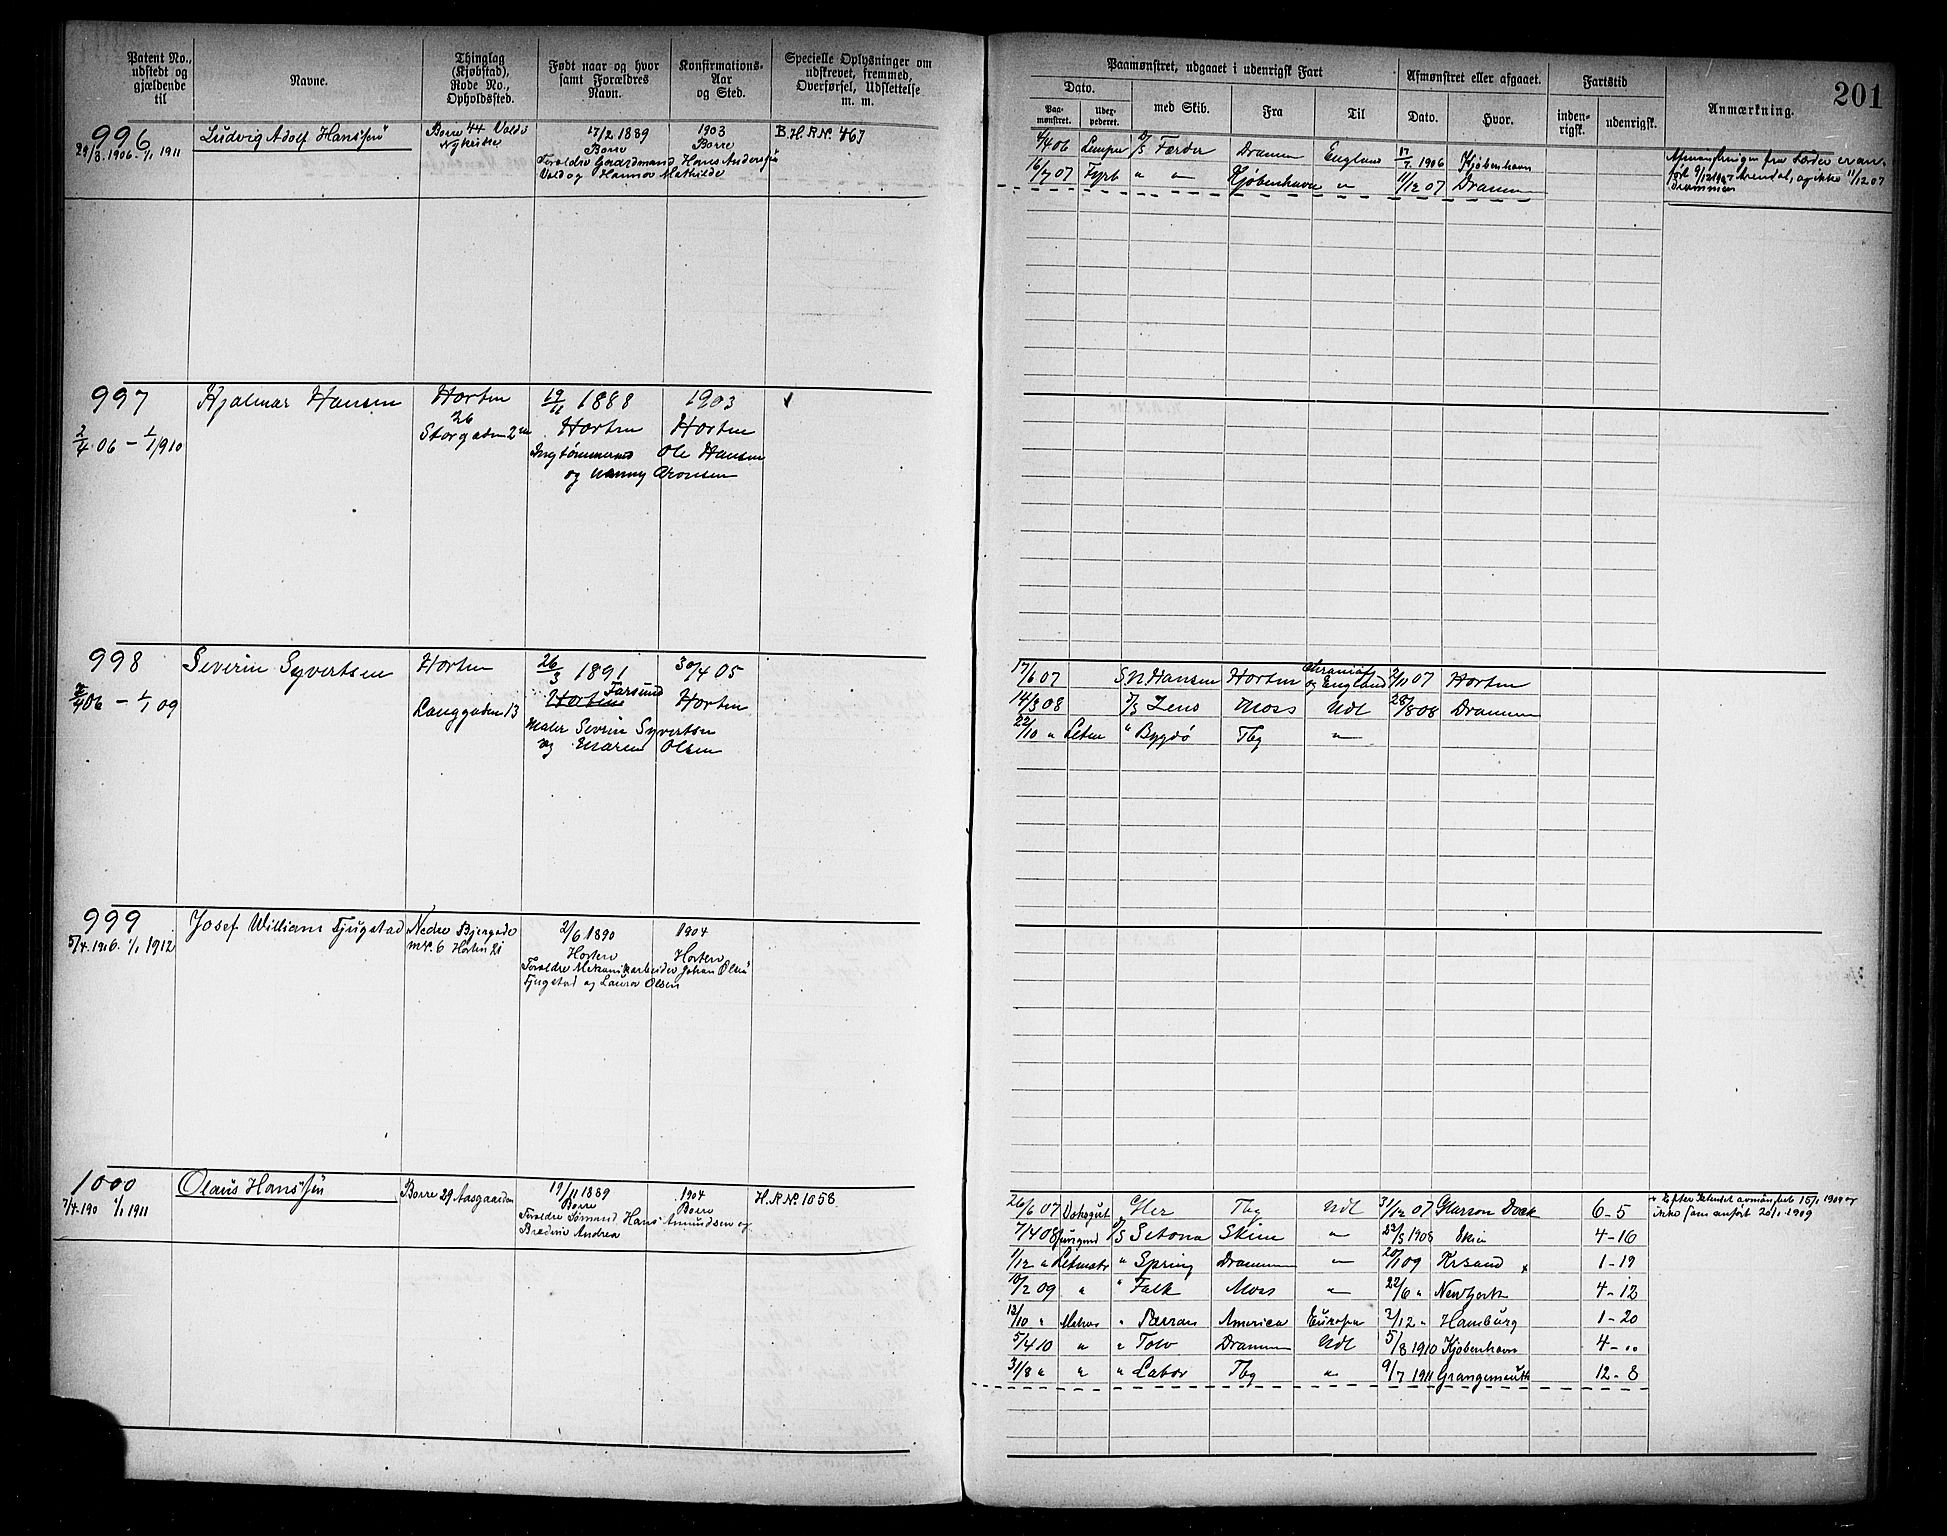 Patent No., udstedt og gjældende til
Navne.
Thinglag (Kjøbstad), Rode No., Opholdssted.
Født naar og hvor samt Forældres Navn.
Konfirmations-Aar og Sted.
Specielle Oplysninger om udskrevet, fremmed, Overførsel, Udslettelse m. m.
Paamønstret, udgaaet i udenrigsk Fart
Dato.
Paa-mønstret.
Uder-pederet.
med Skib.
Fra
Til
Afmønstret eller afgaaet.
Dato.
Hvor.
Fartstid
inden-rigsk.
udenrigsk.
Anmærkning.
201
996 Ludvig Adolf Hanssen Borre 44 17/2 1889 1903 B.H.R.N. 467
29/3.1906-1/1 1911 Nykirke Borre Borre
Forældre Gaardmand Hans Andersen
Vold og Hanna Mathilde
4/4 06 D/S Færder Dramen England 17/7 1906 Kjøbenhavn
16/7 07 Fyrb " " Kjøbenhavn " 11/12 07 Dramen
Afmønstringen fra Færder er an-
ført 9/12 1907 Arendal, og ikke 11/12 07
Drammen
997 Hjalmar Hansen Horten 19/11 1888 1903
26
2/4.06 - 1/1 910 Storgaden Horten Horten
Ole Hansen
og Nanny Aronsen
998 Severin Syvertsen Horten 26/3 1891 30/4 05
Farsund
06 - 1/1 09 Langgaden 13 Horten Horten
Maler Severin Syvertsen
og Maren Olsen
17/6 07 S.N. Hansen Horten og England 07 Horten
14/3 08 D/S Zeus Moss Udl 08 Dramen
22/10 " Letm " Bygdø Tbg "
999 Josef William Tjugstad Nedre 2/6 1890 1904
5/4.1906. 1/1 1912 mk. 6 Horten 21 Horten Horten
Forældre Mekanikarbeider Johan Olsen
Tjugstad og Laura Olsen
1000 Olaus Hanssen Borre 29 Aasgaarden 19/11 1889 1904 H.R.No. 1058
7/4.190 1/1 1911 Borre Borre
Forældre Sømand Hans Amundsen og
Bredine Andrea
26/6 07 Dæksgut Her Tbg Udl 31/12 07 Garson Dock 6-5
7/4 08 D/S Setona Skien " 22/8 1908 Skien 4-16
1/12 " Letmatr " Spring Dramen " 20/1 09 Krsand x 1-19
10/2 09 " " Falk Moss " 22/6 " NewYork 4-12
13/10 " Matros " America Europa 2/12 " Hamburg 1-20
5/4 10 " " Tolv Dramen Udl 5/8 1910 Kjøbenhavn 4-"
31/8 " " " Labor Tbg " 9/7 1911 Grangemouth 12-8
x Efter afmønstret 15/1 1909 og
ikke som anført 20/1 1909